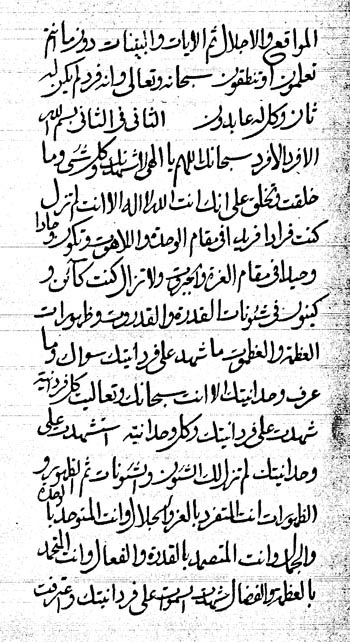 المواقع والاجلال ثم الآيات والبينات دون ما انتم
تعلمون او تنطقون سبحانه وتعالى وانه فرد لم يكن له
ثان وكل له عابدون الثانى فى الثانى بسم الله
الافرد الافرد سبحانك اللهم يا الهى لاشهدنك وكل شىء وما
خلقت وتخلق على انك انت الله لا اله الا انت لم تزل
كنت فرادا فريدا فى مقام الوحدة واللاهوت وتكونن وحادا
وحيدا فى مقام العزة والجبروت ولا تزال كنت كائن و
كينون فى شئونات القدرة والقدروت وظهورات
العظمة والعظموت ما شهد على فردانيتك سواك وما
عرف وحدانيتك الا انت سبحانك وتعاليت كل فردانية
شهدت على فردانيتك وكل وحدانية استشهدت على
وحدانيتك لم تزل لك الشئون والشئونات ثم الظهور و
الظهورات انت المتفرد بالعز والجلال وانت المتوحد بالوحدة
والجمال وانت المتصمد بالقدرة والفعال وانت
بالعظمة والفضال شهدت على فردانيتك واعترفت